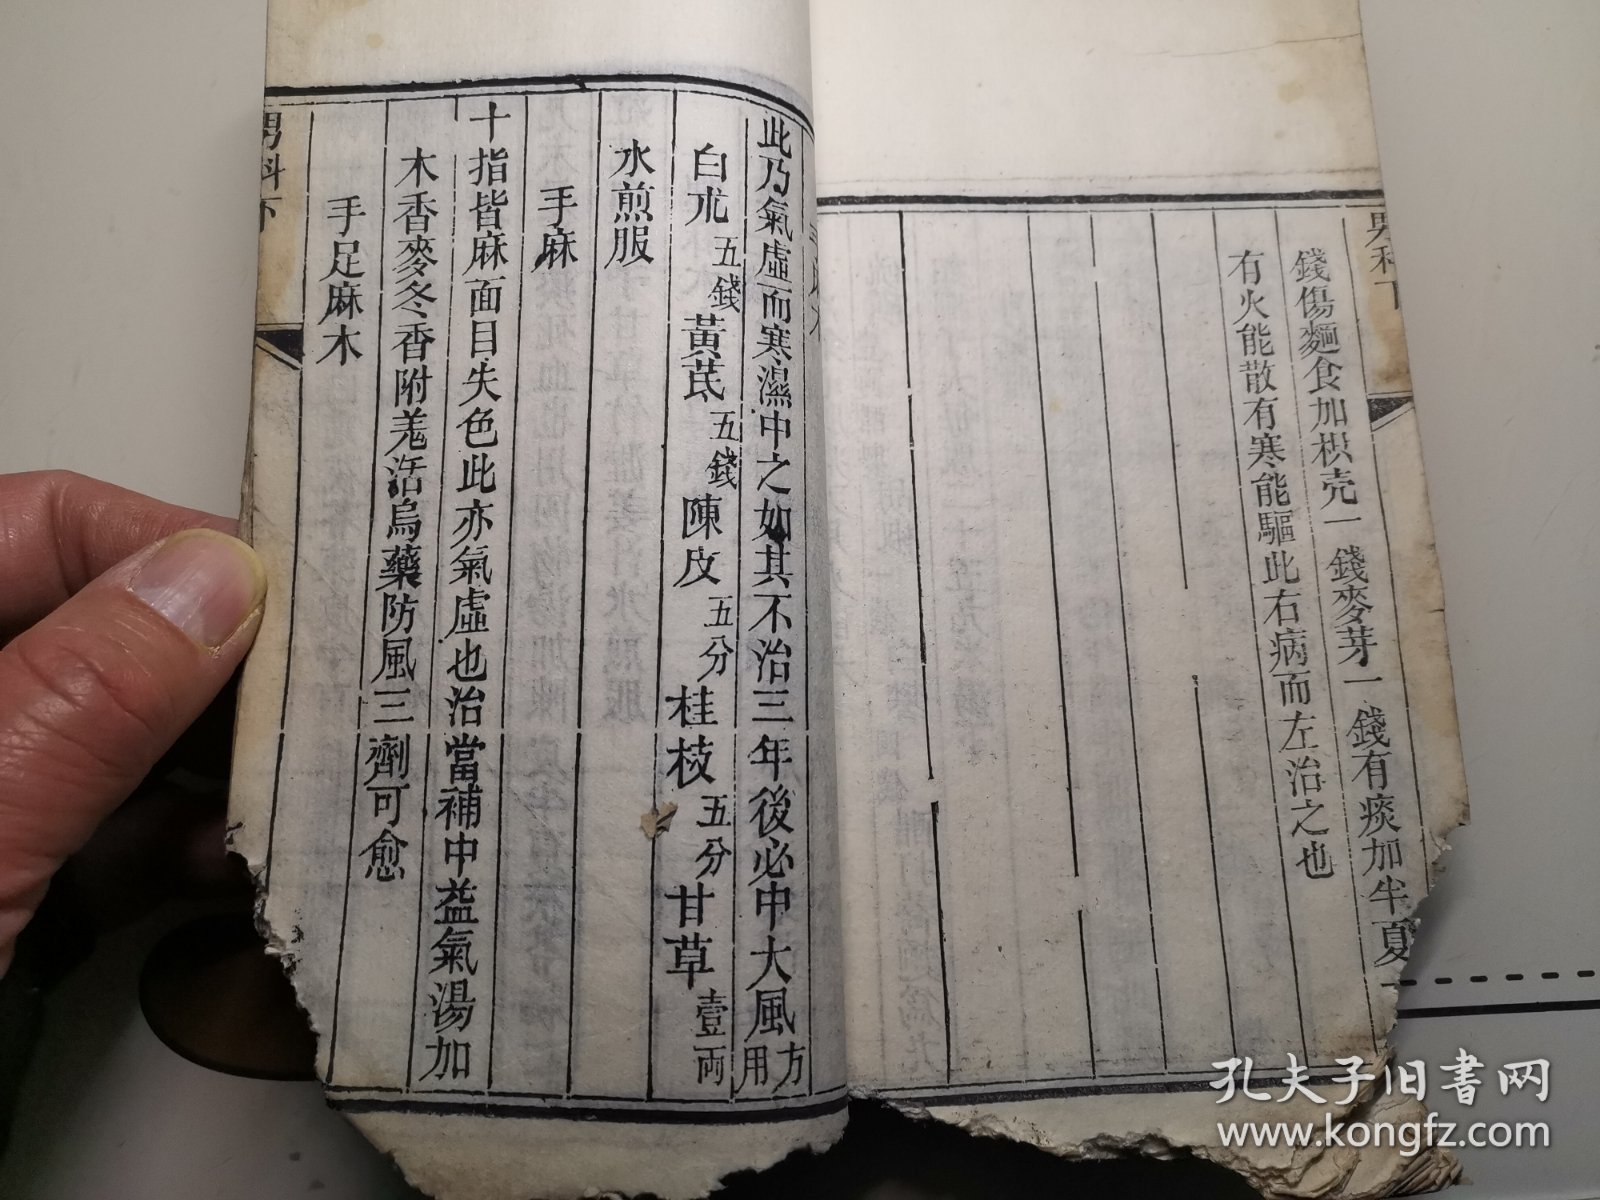 男科下
錢傷麵食加枳壳一錢麥芽一錢有痰加半夏一
有火能散有寒能驅此右病而左治之也
此乃氣虛而寒濕中之如其不治三年後必中大風方用
白朮五錢黃芪五錢陳皮五分桂枝五分甘草壹兩
水煎服
手麻
十指皆麻面目失色此亦氣虛也治當補中益氣湯加
木香麥冬香附羗活烏藥防風三劑可愈
手足麻木
男科下
孔夫子旧書网
www.kongfz.com